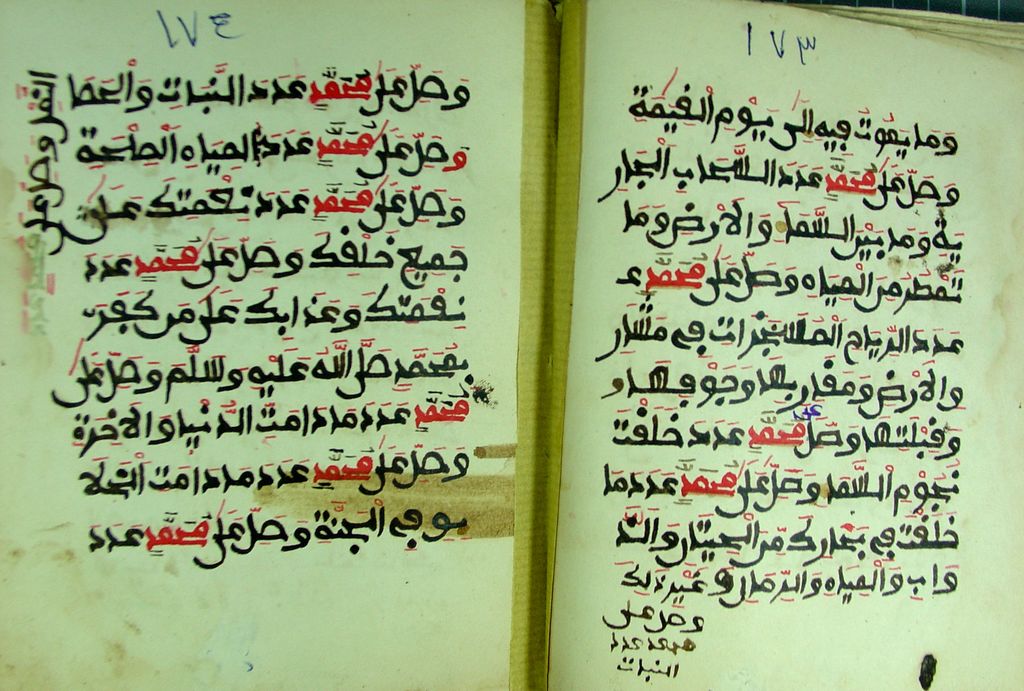 ١٧٣
وما يفوت فيه إلى يوم القيمة
وصل على محمد عدد السحاب الجار
ية وما بين السماء والارض وما
تمطر من المياه وصل على محمد عد
عدد الرياح المسخرات في مشار
والارض ومغاربها وجوفها و
وقبلتها وصل على محمد عدد خلقت
نجوم السماء وصل على محمد عدد ما
خلقت في بحارك من الحيتان والد
واب والمياه والرمال وغير ذلك
وصل على
محمد عدد
النبات
١٧٤
وصل على محمد عدد النبات والحصا
وصل على محمد عدد المياه الملحة
وصل على محمد عدد نعمتك على
جميع خلقك وصل على محمد عدد
نقمتك وعذابك على من كفر
بمحمد صل الله عليه وسلم وصل على
محمد عدد ما دامت الدنيا والاخرة
وصل على محمد عدد ما دامت الخلا
يو في الجنة وصل على محمد عدد
النمل وصل على
محمد عدد